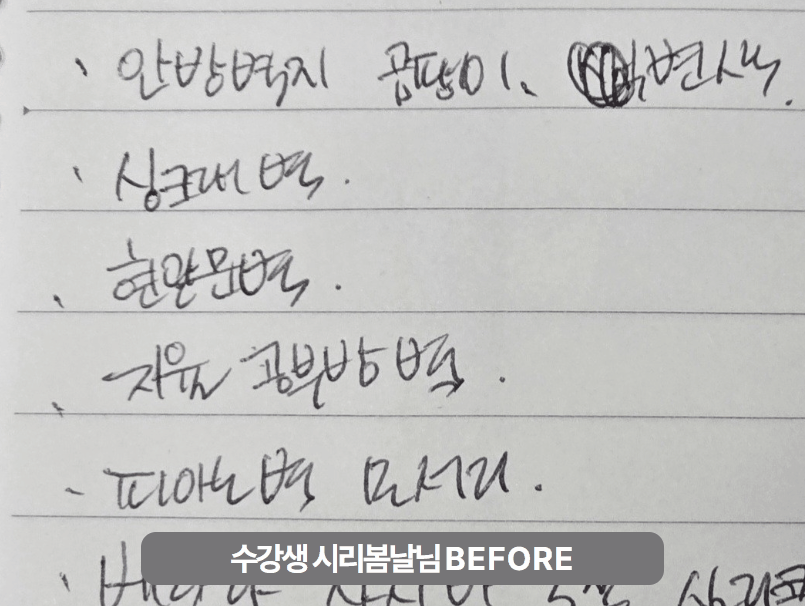 、 안방벽지 곰팡이、 변색.
、 싱크대 벽.
、 현관문벽.
、 지윤 공부방 벽.
- 피아노벽 모서리.
수강생 시리봄날님 BEFORE